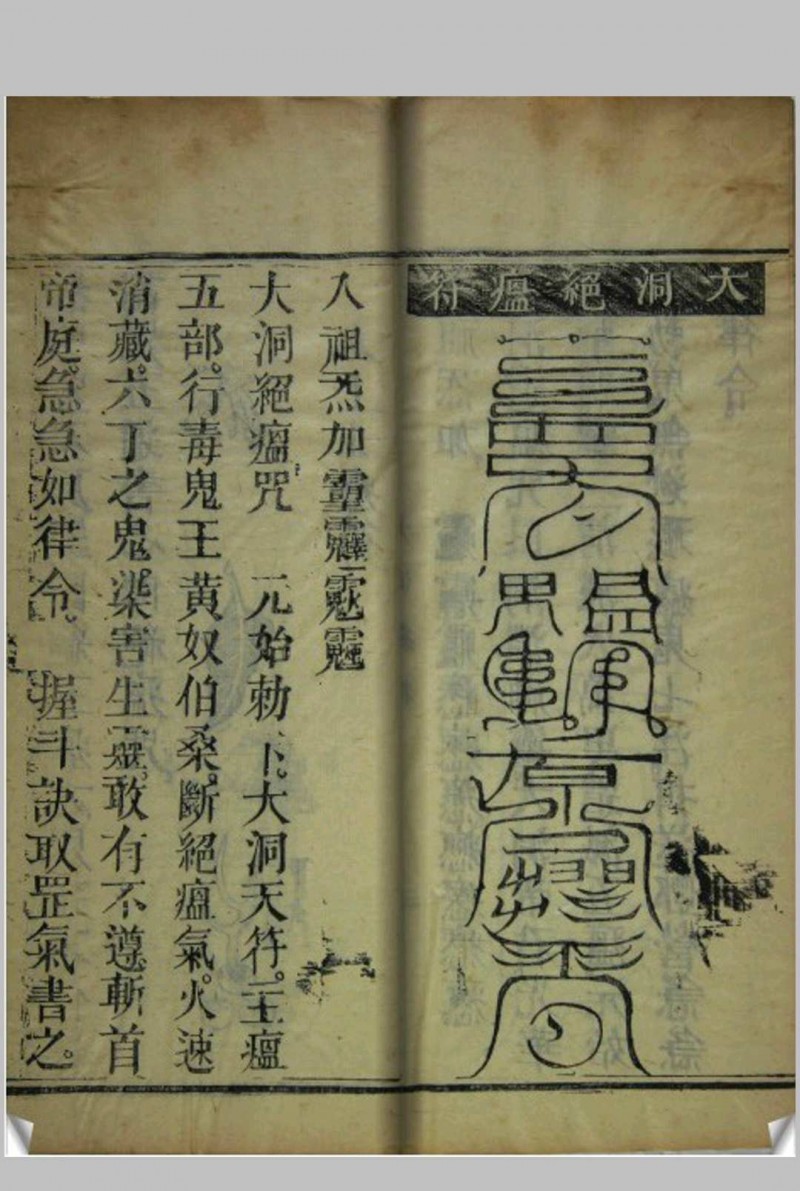 大洞絕瘟符
入祖炁加
大洞絕瘟咒　元始勅下。大洞天符。主瘟
五部。行毒鬼王黃奴伯桑。斷絕瘟氣。火速
消藏。六丁之鬼。渠害生靈。敢有不遵。斬首
帝庭。急急如律令。握斗訣取罡氣書之。